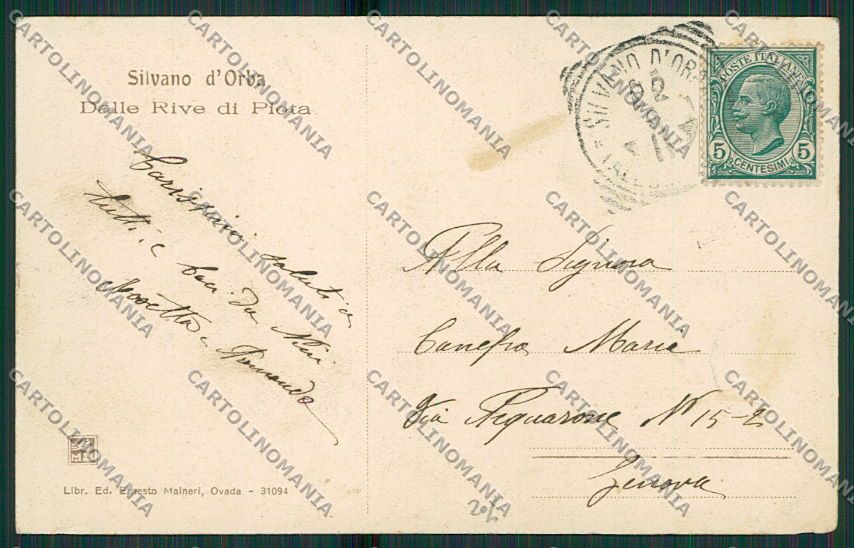 Silvano d'Orba
Dalle Rive di Piota
Carissimi saluti a
tutti e baci da Nini
Rosetta e Armando
Libr. Ed. Ernesto Maineri, Ovada - 31094
SILVANO D'ORBA
POSTE ITALIANE
5 CENTESIMI 5
Alla Signora
Canepa Maria
Via Acquarone N° 15-2
Genova
CARTOLINOMANIA